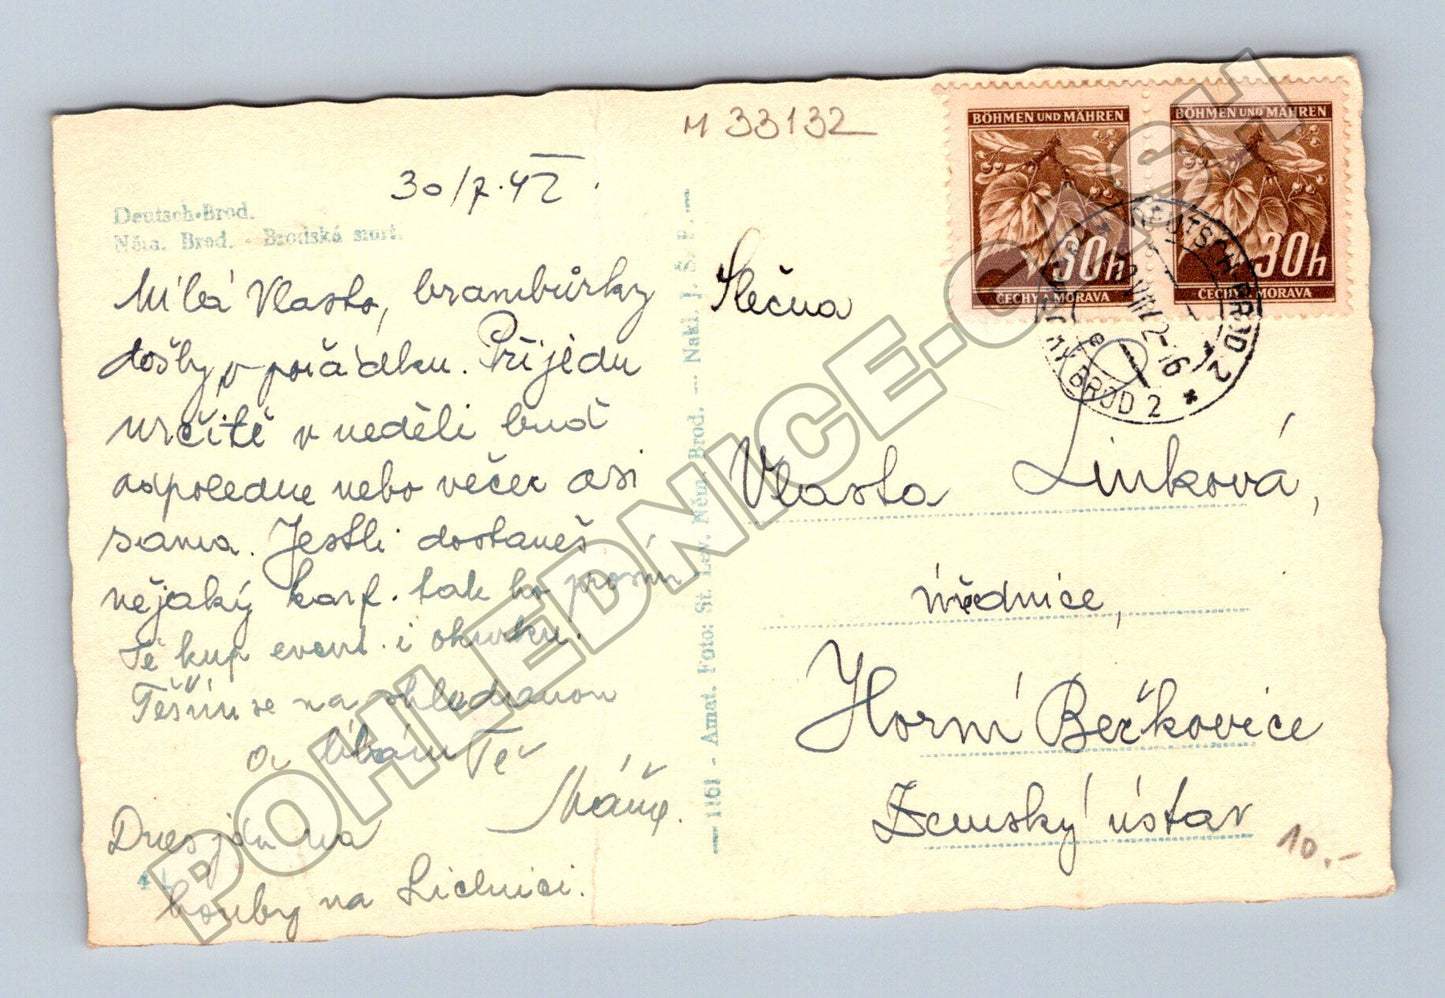 M 33132
30/7.42.
Deutsch-Brod.
Něm. Brod. - Brodská smrt.
Milá Vlasto, brambůrky
došly v pořádku. Přijedu
určitě v neděli buď
odpoledne nebo večer asi
sama. Jestli dostaneš
nějaký karf. tak ho prosím
Tě kup event. i okurku.
Těším se na shledanou
a líbám Tě
Máňa.
Dnes jdu na
houby na Lichnici.
— 1161 - Amat. Foto: St. Lev. Něm. Brod. — Nakl. J. Š. P. —
BÖHMEN UND MÄHREN
30h
ČECHY A MORAVA
BÖHMEN UND MÄHREN
30h
ČECHY A MORAVA
DEUTSCH BROD 2
BROD 2
Slečna
Vlasta Linková,
úřednice,
Horní Beřkovice
Zemský ústav
10.-
POHLEDNICE.CASH